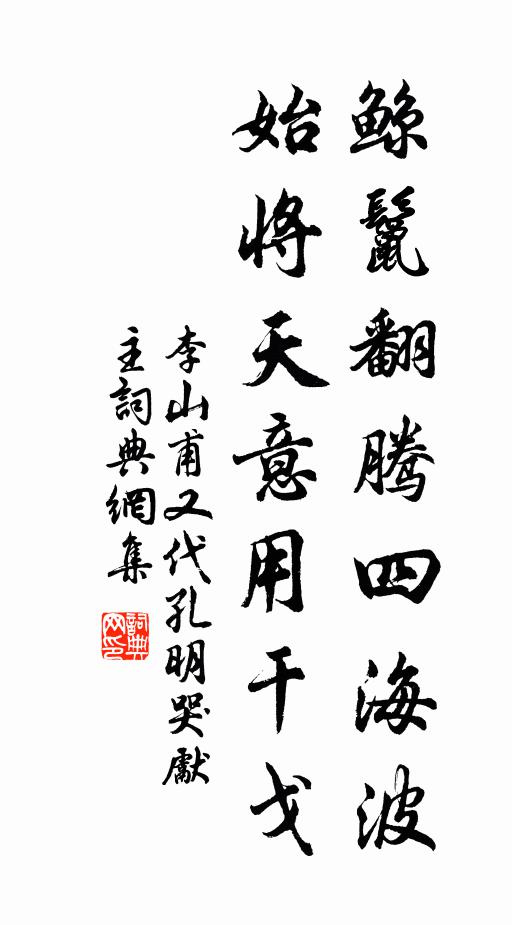 鯨鬣翻騰四海波
始將天意用干戈
李山甫又代孔明哭獻
主詞典網集
詞典
网印